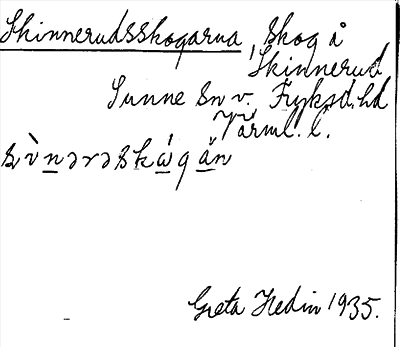 Skinnerudsskogarna, skog å
Skinnerud
Sunne sn v. Fryksd. hd
Värml. l.
Greta Hedin 1935.